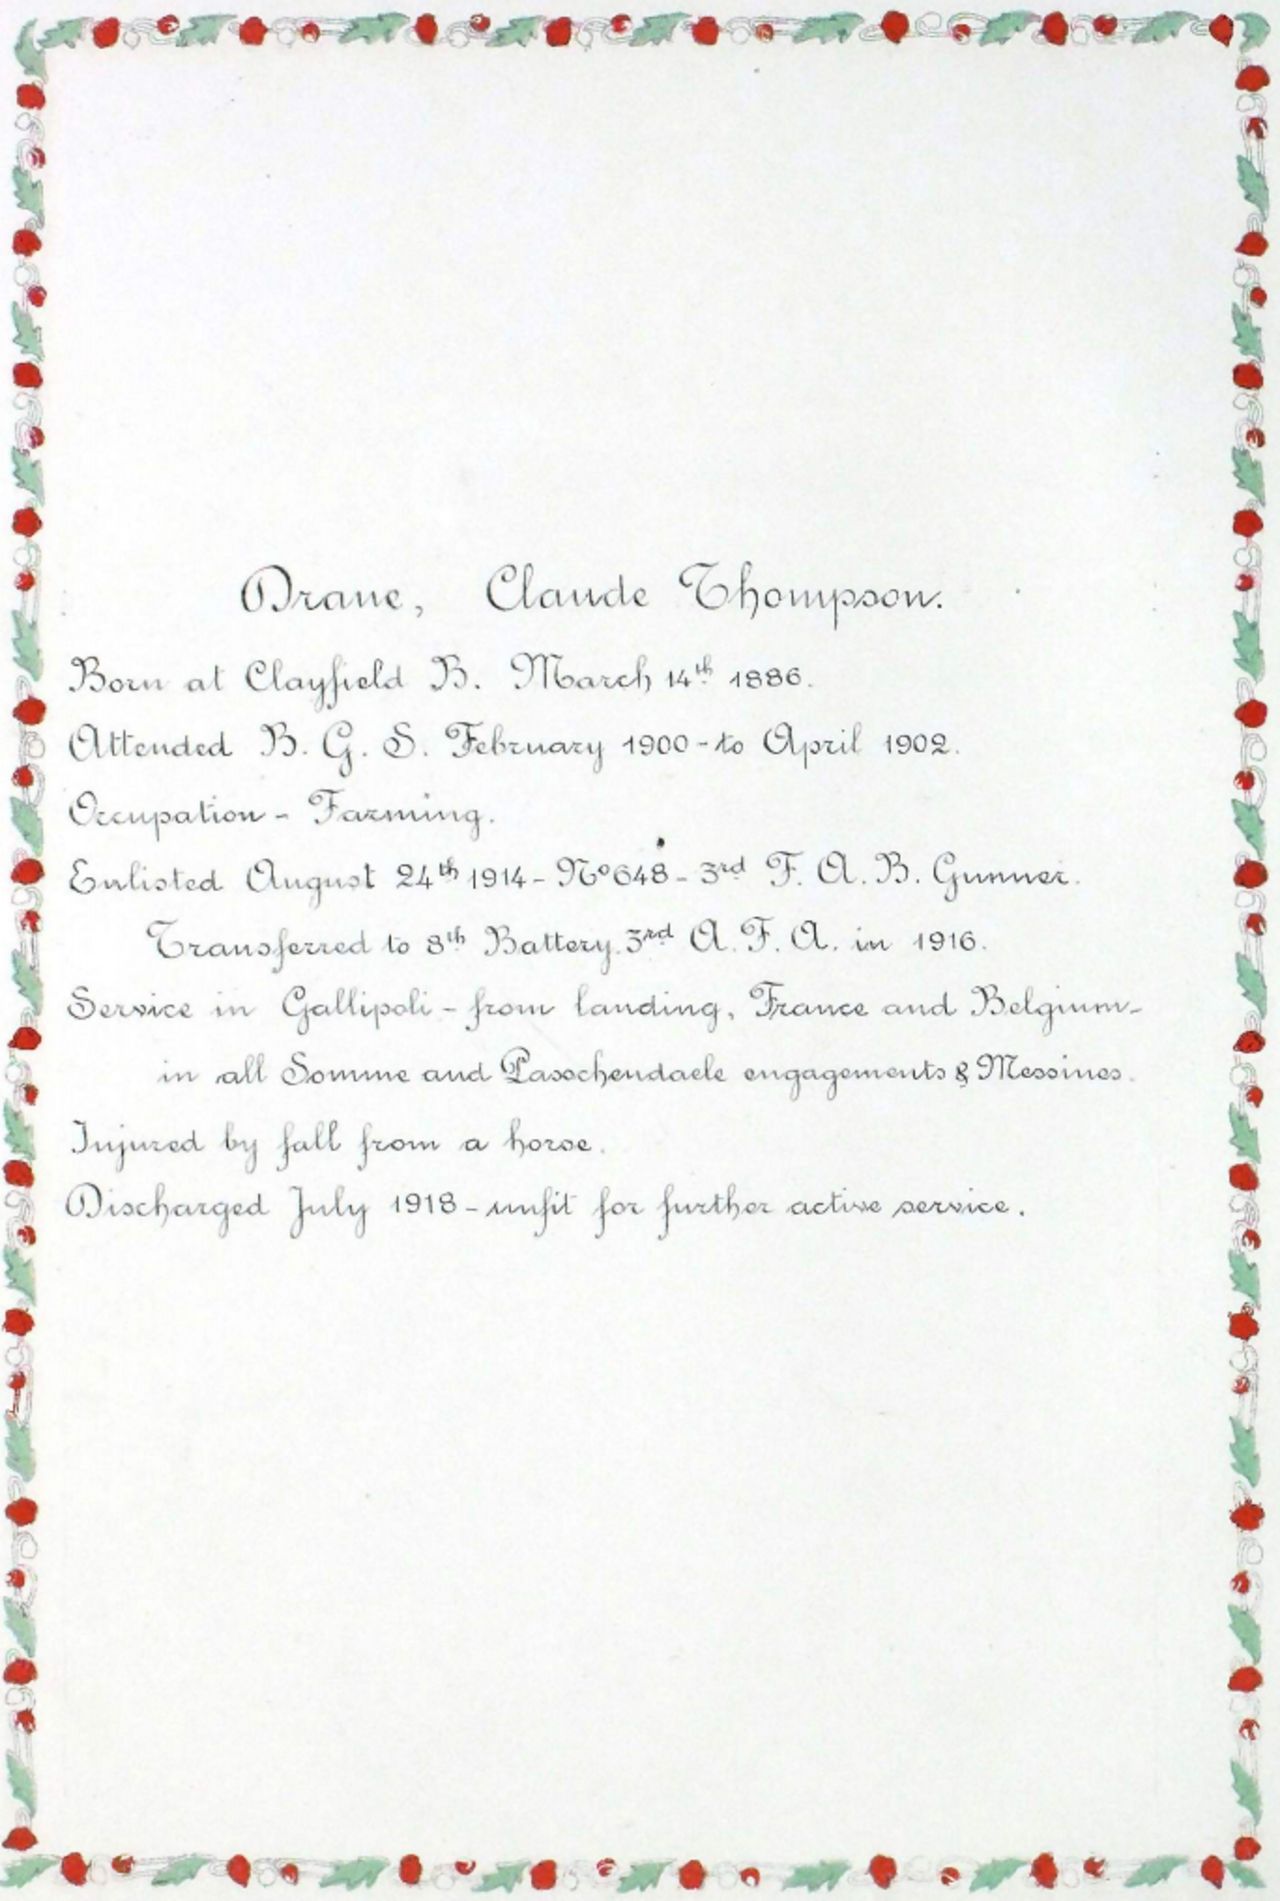 Drane, Claude Thompson.
Born at Clayfield B. March 14th 1886.
Attended B. G. S. February 1900 - to April 1902.
Occupation - Farming.
Enlisted August 24th 1914 - No 648 - 3rd F. A. B. Gunner.
Transferred to 8th Battery. 3rd A. F. A. in 1916.
Service in Gallipoli - from landing, France and Belgium -
in all Somme and Passchendaele engagements & Messines.
Injured by fall from a horse.
Discharged July 1918 - unfit for further active service.